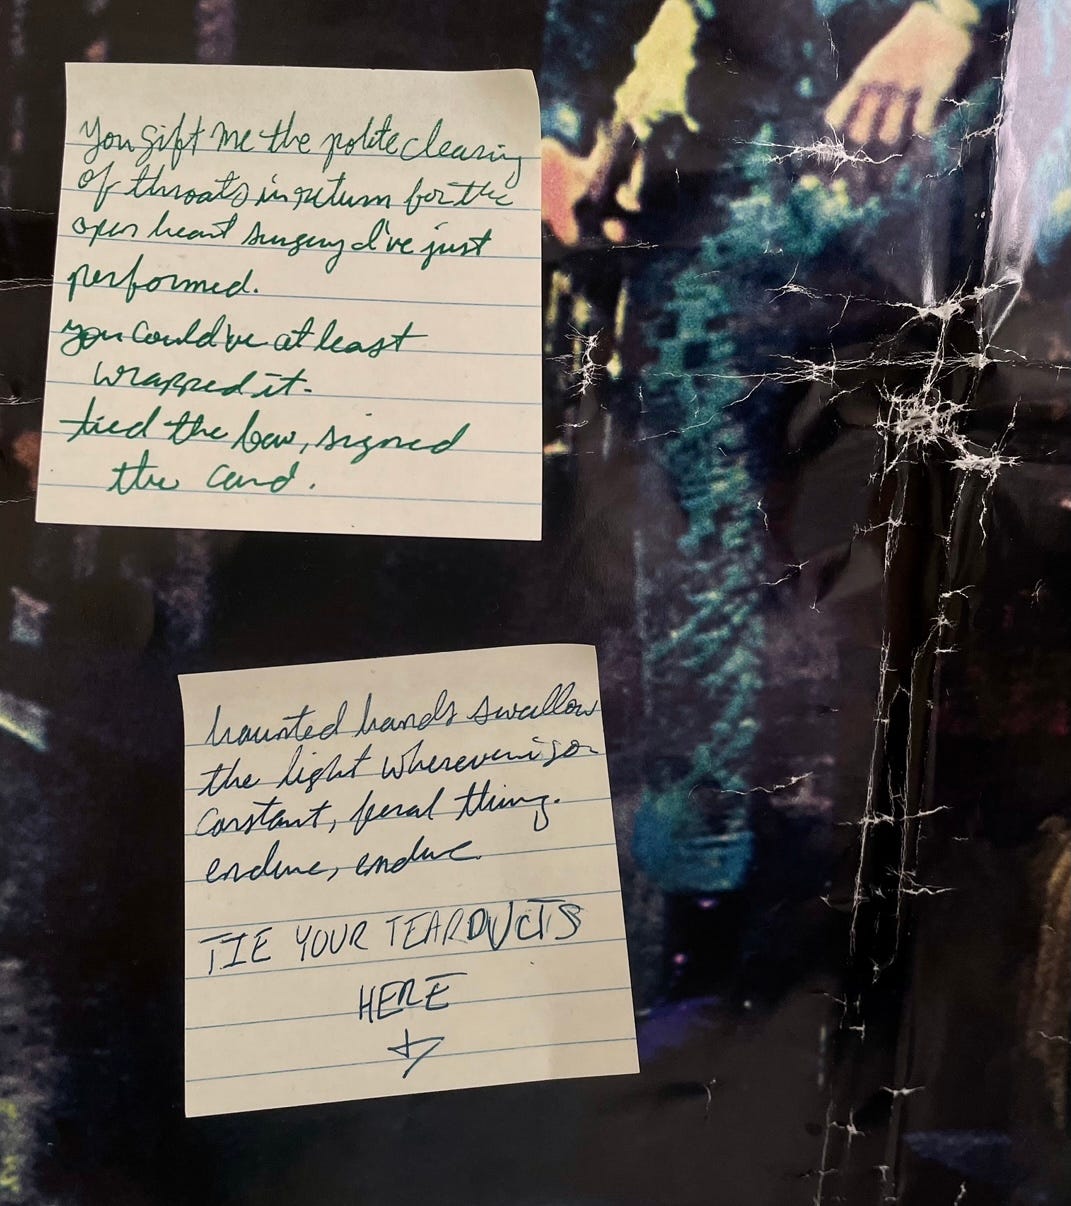 you gift me the polite clearing
of throats in return for the
open heart surgery I've just
performed.
you could've at least
wrapped it.
tied the bow, signed
the card.
haunted hands swallow
the light wherever i go.
constant, feral thing.
endure, endure.
TIE YOUR TEARDUCTS
HERE